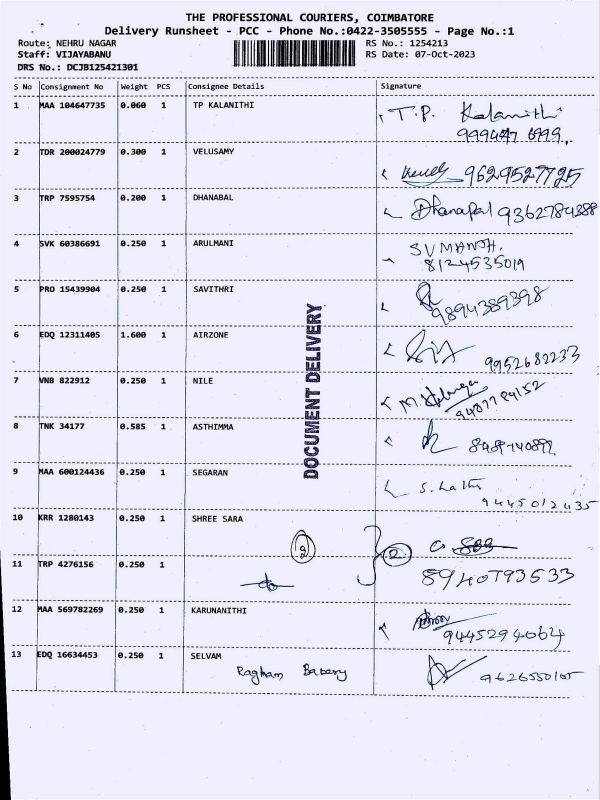 THE PROFESSIONAL COURIERS, COIMBATORE
Delivery Runsheet - PCC - Phone No.:0422-3505555 - Page No.:1
Route: NEHRU NAGAR
RS No.: 1254213
Staff: VIJAYABANU
RS Date: 07-Oct-2023
DRS No.: DCJB125421301
S No Consignment No Weight PCS Consignee Details Signature
1 MAA 104647735 0.060 1 TP KALANITHI T.P. Kalanithi
2 TDR 200024779 0.300 1 VELUSAMY 9629527725
3 TRP 7595754 0.200 1 DHANABAL Dhanapal 9362784388
4 SVK 60386691 0.250 1 ARULMANI
8124535019
5 PRO 15439904 0.250 1 SAVITHRI
9894389398
6 EDQ 12311405 1.600 1 AIRZONE
9952682233
7 VNB 822912 0.250 1 NILE
9487784152
8 TNK 34177 0.585 1 ASTHIMMA
9 MAA 600124436 0.250 1 SEGARAN
9445012435
10 KRR 1280143 0.250 1 SHREE SARA
2 2
11 TRP 4276156 0.250 1
8940793533
12 MAA 569782269 0.250 1 KARUNANITHI
9445294064
13 EDQ 16634453 0.250 1 SELVAM
Ragham
DOCUMENT DELIVERY